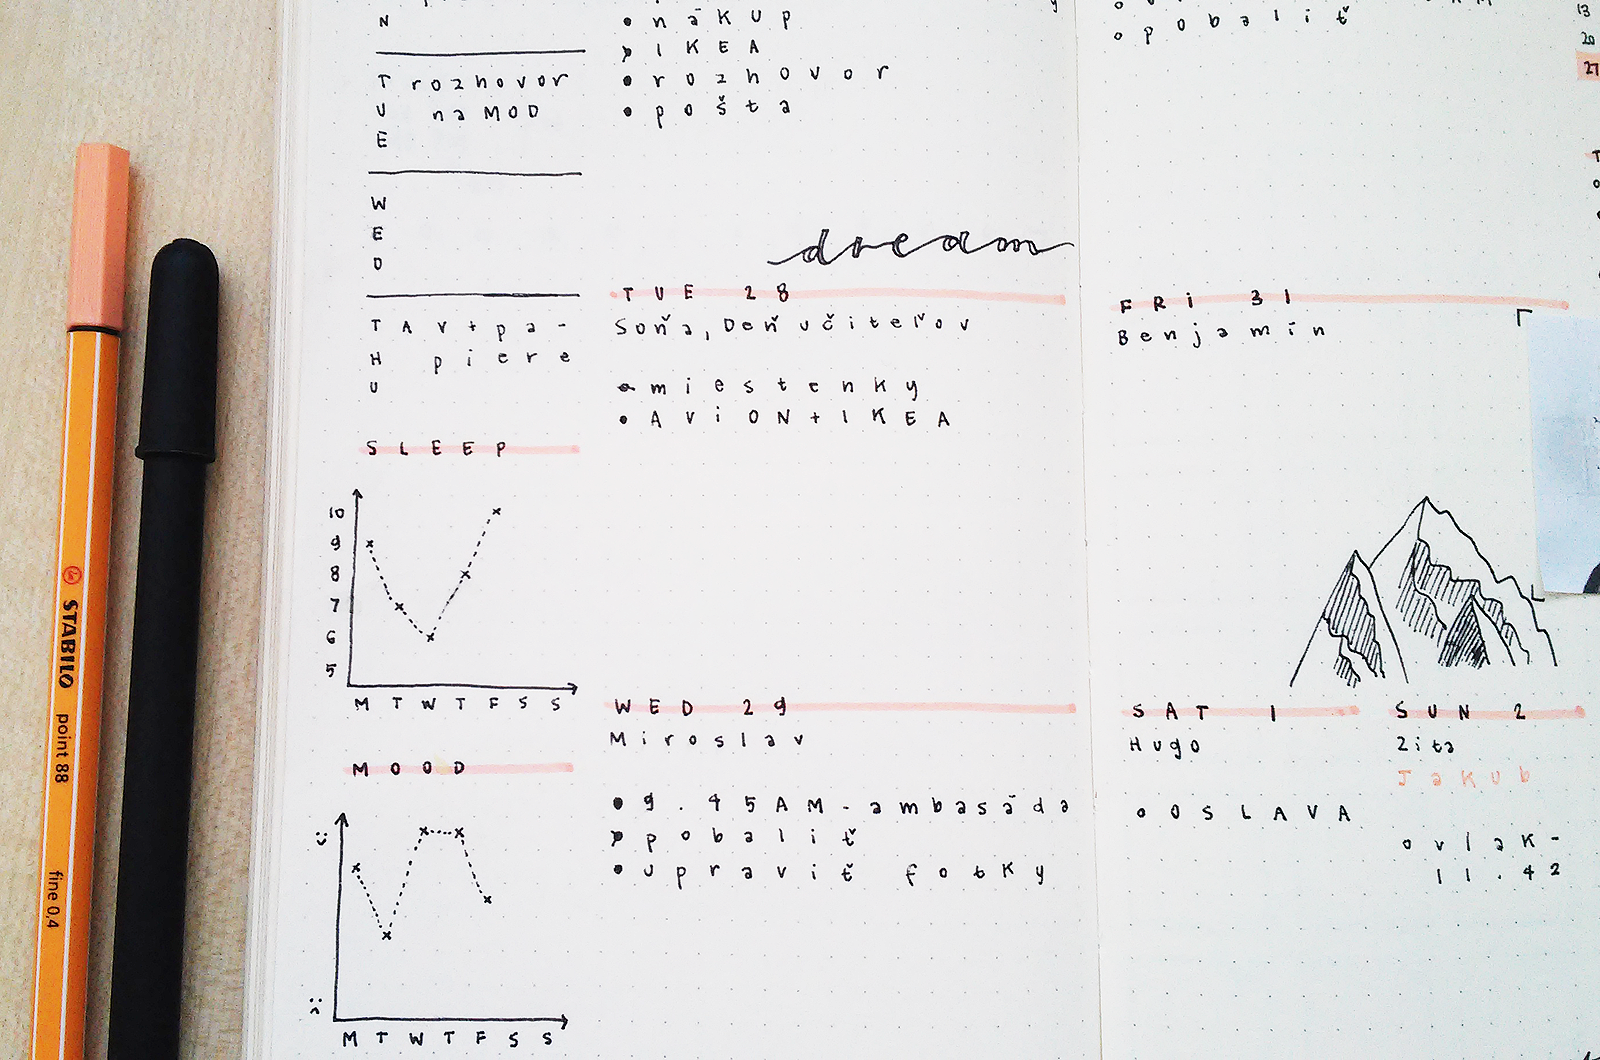 N
T
U
E
rozhovor
na MOD
W
E
D
T
H
U
AVt pa-
piere
SLEEP
10
9
8
7
6
5
M T W T F S S
MOOD
M T W T F S S
nákup
IKEA
rozhovor
pošta
dream
TUE 28
Soňa, Deň učiteľov
miestenky
AViON+IKEA
WED 29
Miroslav
9.45AM-ambasáda
pobaliť
upraviť fotky
pobaliť
FRi 31
Benjamín
SAT 1
Hugo
OSLAVA
SUN 2
Zita
Jakub
vlak-
11.42
13
20
27
STABILO point 88 fine 0,4